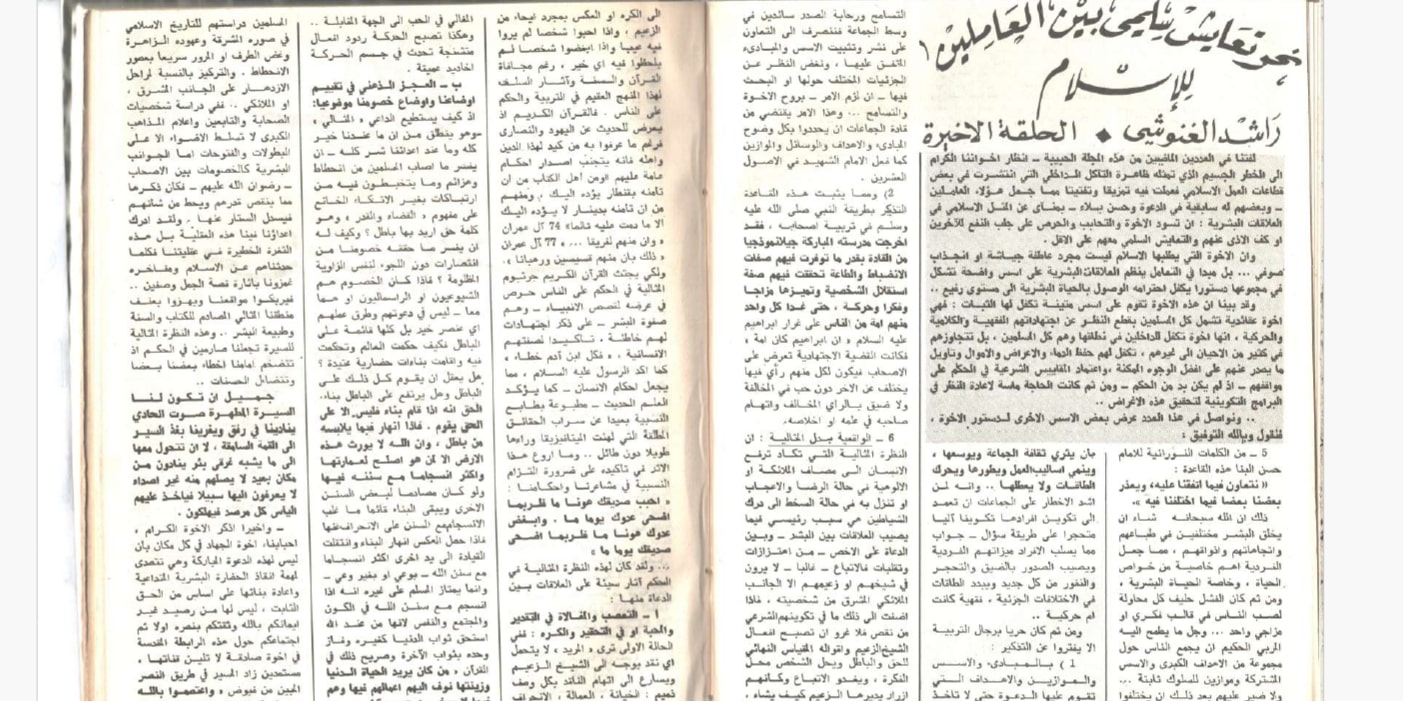 نحو تعايش سلمي بين العاملين
للإسلام
راشد الغنوشي ◆ الحلقة الاخيرة
لفتنا في العددين الماضيين من هذه المجلة الحبيبة – انظار اخواننا الكرام
الى الخطر الجسيم الذي تمثله ظاهرة التآكل الداخلي التي انتشرت في بعض
قطاعات العمل الاسلامي فعملت فيه تمزيقا وتفتيتا مما جعل هؤلاء العاملين
– وبعضهم له سابقية في الدعوة وحسن بلاء – بمنأى عن المثل الاسلامي في
العلاقات البشرية : ان تسود الاخوة والتحابب والحرص على جلب النفع للآخرين
او كف الاذى عنهم والتعايش السلمي معهم على الاقل .
وان الاخوة التي يطلبها الاسلام ليست مجرد عاطفة جياشة او انجذاب
صوفي ... بل مبدا في التعامل ينظم العلاقات البشرية على اسس واضحة تشكل
في مجموعها دستورا يكفل احترامه الوصول بالحياة البشرية الى مستوى رفيع ..
وقد بينا ان هذه الاخوة تقوم على اسس متينة تكفل لها الثبات : فهي
اخوة عقائدية تشمل كل المسلمين بقطع النظر عن اجتهاداتهم الفقهية والكلامية
والحركية ، انها اخوة تكفل للداخلين في نطاقها وهم كل المسلمين ، بل تتجاوزهم
في كثير من الاحيان الى غيرهم ، تكفل لهم حفظ الدماء والاعراض والاموال وتاويل
ما يصدر عنهم على افضل الوجوه الممكنة ،واعتماد المقاييس الشرعية في الحكم على
مواقفهم – اذ لم يكن بد من الحكم – ومن ثم كانت الحاجة ماسة لاعادة النظر في
البرامج التكوينية لتحقيق هذه الاغراض ..
.. ونواصل في هذا العدد عرض بعض الاسس الاخرى لدستور الاخوة ،
فنقول وبالله التوفيق :
5 – من الكلمات النورانية للامام
حسن البنا هذه القاعدة :
« نتعاون فيما اتفقنا عليه، ويعذر
بعضنا بعضا فيما اختلفنا فيه »،
ذلك ان الله سبحانه شاء ان
يخلق البشر مختلفين في طباعهم
واتجاهاتهم واذواقهم ، مما جعل
الفردية اهم خاصية من خواص
الحياة ، وخاصة الحياة البشرية ،
ومن ثم كان الفشل حليف كل محاولة
لصب الناس في قالب فكري او
مزاجي واحد ... وجل ما يطمح اليه
المربي الحكيم ان يجمع الناس حول
مجموعة من الاهداف الكبرى والاسس
المشتركة وموازين للسلوك ثابتة ...
ولا ضير عليهم بعد ذلك ان يختلفوا
بان يثري ثقافة الجماعة ويوسعها ،
وينمي اساليب العمل ويطورها ويحرك
الطاقات ولا يعطلها .. وانه لمن
اشد الاخطار على الجماعات ان تعمد
الى تكوين افرادها تكوينا آليا
متحجرا على طريقة سؤال – جواب
مما يسلب الافراد ميزاتهم الفردية
ويصيب الصدور بالضيق والتحجر
والنفور من كل جديد ويبدد الطاقات
في الاختلافات الجزئية ، فقهية كانت
ام حركية ..
ومن ثم كان حريا برجال التربية
الا يفتروا عن التذكير :
1 ) بالمبادىء والاسس
والموازين والاهداف التي
تقوم عليها الدعوة حتى لا تاخذ
التسامح ورحابة الصدر سائدين في
وسط الجماعة فتنصرف الى التعاون
على نشر وتثبيت الاسس والمبادىء
المتفق عليها ، وتغض النظر عن
الجزئيات المختلف حولها او البحث
فيها – ان لزم الامر – بروح الاخوة
والتسامح .. وهذا الامر يقتضي من
قادة الجماعات ان يحددوا بكل وضوح
المبادىء والاهداف والوسائل والموازين
كما فعل الامام الشهيد في الاصول
العشرين .
2) ومما يثبت هذه القاعدة
التذكير بطريقة النبي صلى الله عليه
وسلم في تربية اصحابه ، فقد
اخرجت مدرسته المباركة جيلا نموذجيا
من القادة بقدر ما توفرت فيهم صفات
الانضباط والطاعة تحققت فيهم صفة
استقلال الشخصية وتميزها مزاجا
وفكرا وحركة ، حتى غدا كل واحد
منهم امة من الناس على غرار ابراهيم
عليه السلام « ان ابراهيم كان امة »
فكانت القضية الاجتهادية تعرض على
الاصحاب فيكون لكل منهم رأي فيها
يختلف عن الآخر دون حب في المخالفة
ولا ضيق بالراي المخالف واتهام
صاحبه في علمه او اخلاصه.
6 – الواقعية بدل المثالية : ان
النظرة المثالية التي تكاد ترفع
الانسان الى مصاف الملائكة او
الالوهية في حالة الرضا والاعجاب
او تنزل به في حالة السخط الى درك
الشياطين هي سبب رئيسي فيما
يصيب العلاقات بين البشر – وبين
الدعاة على الاخص – من اهتزازات
وتقلبات فالاتباع – غالبا – لا يرون
في شيخهم او زعيمهم الا الجانب
الملائكي المشرق من شخصيته ، فاذا
اضفت الى ذلك ما في تكوينهم الشرعي
من نقص فلا غرو ان تصبح افعال
الشيخ الزعيم واقواله المقياس النهائي
للحق والباطل ويحل الشخص محل
الفكرة ، ويغدو الاتباع وكأنهم
ازرار يديرها الزعيم كيف يشاء ،
الى الكره او العكس بمجرد ايحاء من
الزعيم ، واذا احبوا شخصا لم يروا
فيه عيبا واذا ابغضوا شخصا لم
يلحظوا فيه اي خير ، رغم مجافاة
القرآن والسنة وآثار السلف
لهذا النهج العقيم في التربية والحكم
على الناس . فالقرآن الكريم اذ
يعرض للحديث عن اليهود والنصارى
فرغم ما عرفوا به من كيد لهذا الدين
واهله فانه يتجنب اصدار احكام
عامة عليهم «ومن اهل الكتاب من ان
تامنه بقنطار يؤده اليك ، ومنهم
من ان تامنه بدينار لا يؤده اليك
الا ما دمت عليه قائما» 74 آل عمران
« وان منهم لفريقا ... » 77 آل عمران
« ذلك بان منهم قسيسين ورهبانا ».
ولكي يجتث القرآن الكريم جرثوم
المثالية في الحكم على الناس حرص
في عرضه لقصص الانبياء – وهم
صفوة البشر – على ذكر اجتهادات
لهم خاطئة ، تاكيدا لصفتهم
الانسانية ، « فكل ابن آدم خطاء »
كما اكد الرسول عليه السلام ، مما
يجعل احكام الانسان – كما يؤكد
العلم الحديث – مطبوعة بطابع
النسبية بعيدا عن سراب الحقائق
المطلقة التي لهثت الميتافيزيقا وراءها
طويلا دون طائل .. وما اروع هذا
الاثر في تاكيده على ضرورة التزام
النسبية في مشاعرنا واحكامنا :
« احبب صديقك هونا ما فلربما
اضحى عدوك يوما ما . وابغض
عدوك هونا ما فلربما اضحى
صديقك يوما ما »
.. ولقد كان لهذه النظرة المثالية في
الحكم آثار سيئة على العلاقات بين
الدعاة منها :
ا – التعصب والمغالاة في التقدير
والمحبة او في التحقير والكره : ففي
الحالة الاولى ترى « المريد » لا يتحمل
اي نقد يوجه الى الشيخ الزعيم
ويسارع الى اتهام الناقد بكل وصف
ذميم : الخيانة ، العمالة ، الانحراف
المغالي في الحب الى الجهة المقابلة ..
وهكذا تصبح الحركة ردود افعال
متشنجة تحدث في جسم الحركة
اخاديد عميقة .
ب – العجز الذهني في تقييم
اوضاعنا واوضاع خصومنا موضوعيا:
اذ كيف يستطيع الداعي « المثالي »
–وهو ينطلق من ان ما عندنا خير
كله وما عند اعدائنا شر كله – ان
يفسر ما اصاب المسلمين من انحطاط
وهزائم وما يتخبطون فيه من
ارتباكات بغير الاتكاء الخانع
على مفهوم « القضاء والقدر » وهو
كلمة حق اريد بها باطل ؟ وكيف له
ان يفسر ما حققه خصومنا من
انتصارات دون اللجوء لنفس الزاوية
المظلومة ؟ فاذا كان الخصوم هم
الشيوعيون او الراسماليون او هما
معا – ليس في دعوتهم وطرق عملهم
اي عنصر خير بل كلها قائمة على
الباطل فكيف حكمت العالم وتحكمت
فيه واقامت بناءات حضارية عتيدة ؟
هل يعقل ان يقوم كل ذلك على
الباطل وهل يرتفع على الباطل بناء.
الحق انه اذا قام بناء فليس الا على
الحق يقوم . فاذا انهار فبما يلابسه
من باطل ، وان الله لا يورث هذه
الارض الا لمن هو اصلح لعمارتها
واكثر انسجاما مع سننه فيها
ولو كان مصادما لبعض السنن
الاخرى ويبقى البناء قائما ما غلب
الانسجام مع السنن على الانحراف عنها
فاذا حصل العكس انهار البناء وانتقلت
القيادة الى يد اخرى اكثر انسجاما
مع سنن الله – بوعي او بغير وعي –
وانما يمتاز المسلم على غيره انه اذا
انسجم مع سنن الله في الكون
والمجتمع والنفس لانها من عند الله
استحق ثواب الدنيا كغيره وفاز
وحده بثواب الآخرة وصريح ذلك في
القرآن ، « من كان يريد الحياة الدنيا
وزينتها نوف اليهم اعمالهم فيها وهم
المسلمين دراستهم للتاريخ الاسلامي
في صوره المشرقة وعهوده الزاهرة
وغض الطرف او المرور سريعا بعصور
الانحطاط . والتركيز بالنسبة لمراحل
الازدهار على الجانب المشرق ،
او الملائكي .. ففي دراسة شخصيات
الصحابة والتابعين واعلام المذاهب
الكبرى لا تسلط الاضواء الا على
البطولات والفتوحات اما الجوانب
البشرية كالخصومات بين الاصحاب
– رضوان الله عليهم – فكان ذكرها
مما ينقص قدرهم ويحط من شانهم
فيسدل الستار عنها . ولقد ادرك
اعداؤنا فينا هذه العقلية بل هذه
الثغرة الخطيرة في عقليتنا فكلما
حدثناهم عن الاسلام ومفاخره
غمزونا باثارة قصة الجمل وصفين ..
فيربكوا مواقعنا ويهزوا بعنف
منطقنا المثالي المصادم للكتاب والسنة
وطبيعة البشر .. وهذه النظرة المثالية
للسيرة تجعلنا صارمين في الحكم اذ
تتضخم امامنا اخطاء بعضنا بعضا
وتتضاءل الحسنات ..
جميل ان تكون لنا
السيرة المطهرة صوت الحادي
ينادينا في رفق ويغرينا بغذ السير
الى القمة السامقة ، لا ان تتحول معها
الى ما يشبه غرقى بئر ينادون من
مكان بعيد لا يصلهم منه غير اصداء
لا يعرفون اليها سبيلا فياخذ عليهم
الياس كل مرصد فيهلكون .
– واخيرا اذكر الاخوة الكرام ،
احبابنا، اخوة الجهاد في كل مكان بان
ليس لهذه الدعوة المباركة وهي تتصدى
لمهمة انقاذ الحضارة البشرية المتداعية
واعادة بنائها على اساس من الحق
الثابت ، ليس لها من رصيد غير
ايمانكم بالله وثقتكم بنصره اولا ثم
اجتماعكم حول هذه الرابطة المقدسة
في اخوة صادقة لا تلين قناتها ،
مستمدين زاد المسير في طريق النصر
المبين من فيوض « واعتصموا بالله